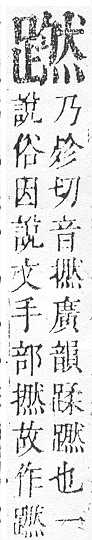 蹨
乃殄切音撚廣韻蹂蹨也一
說俗因說文手部撚故作蹨